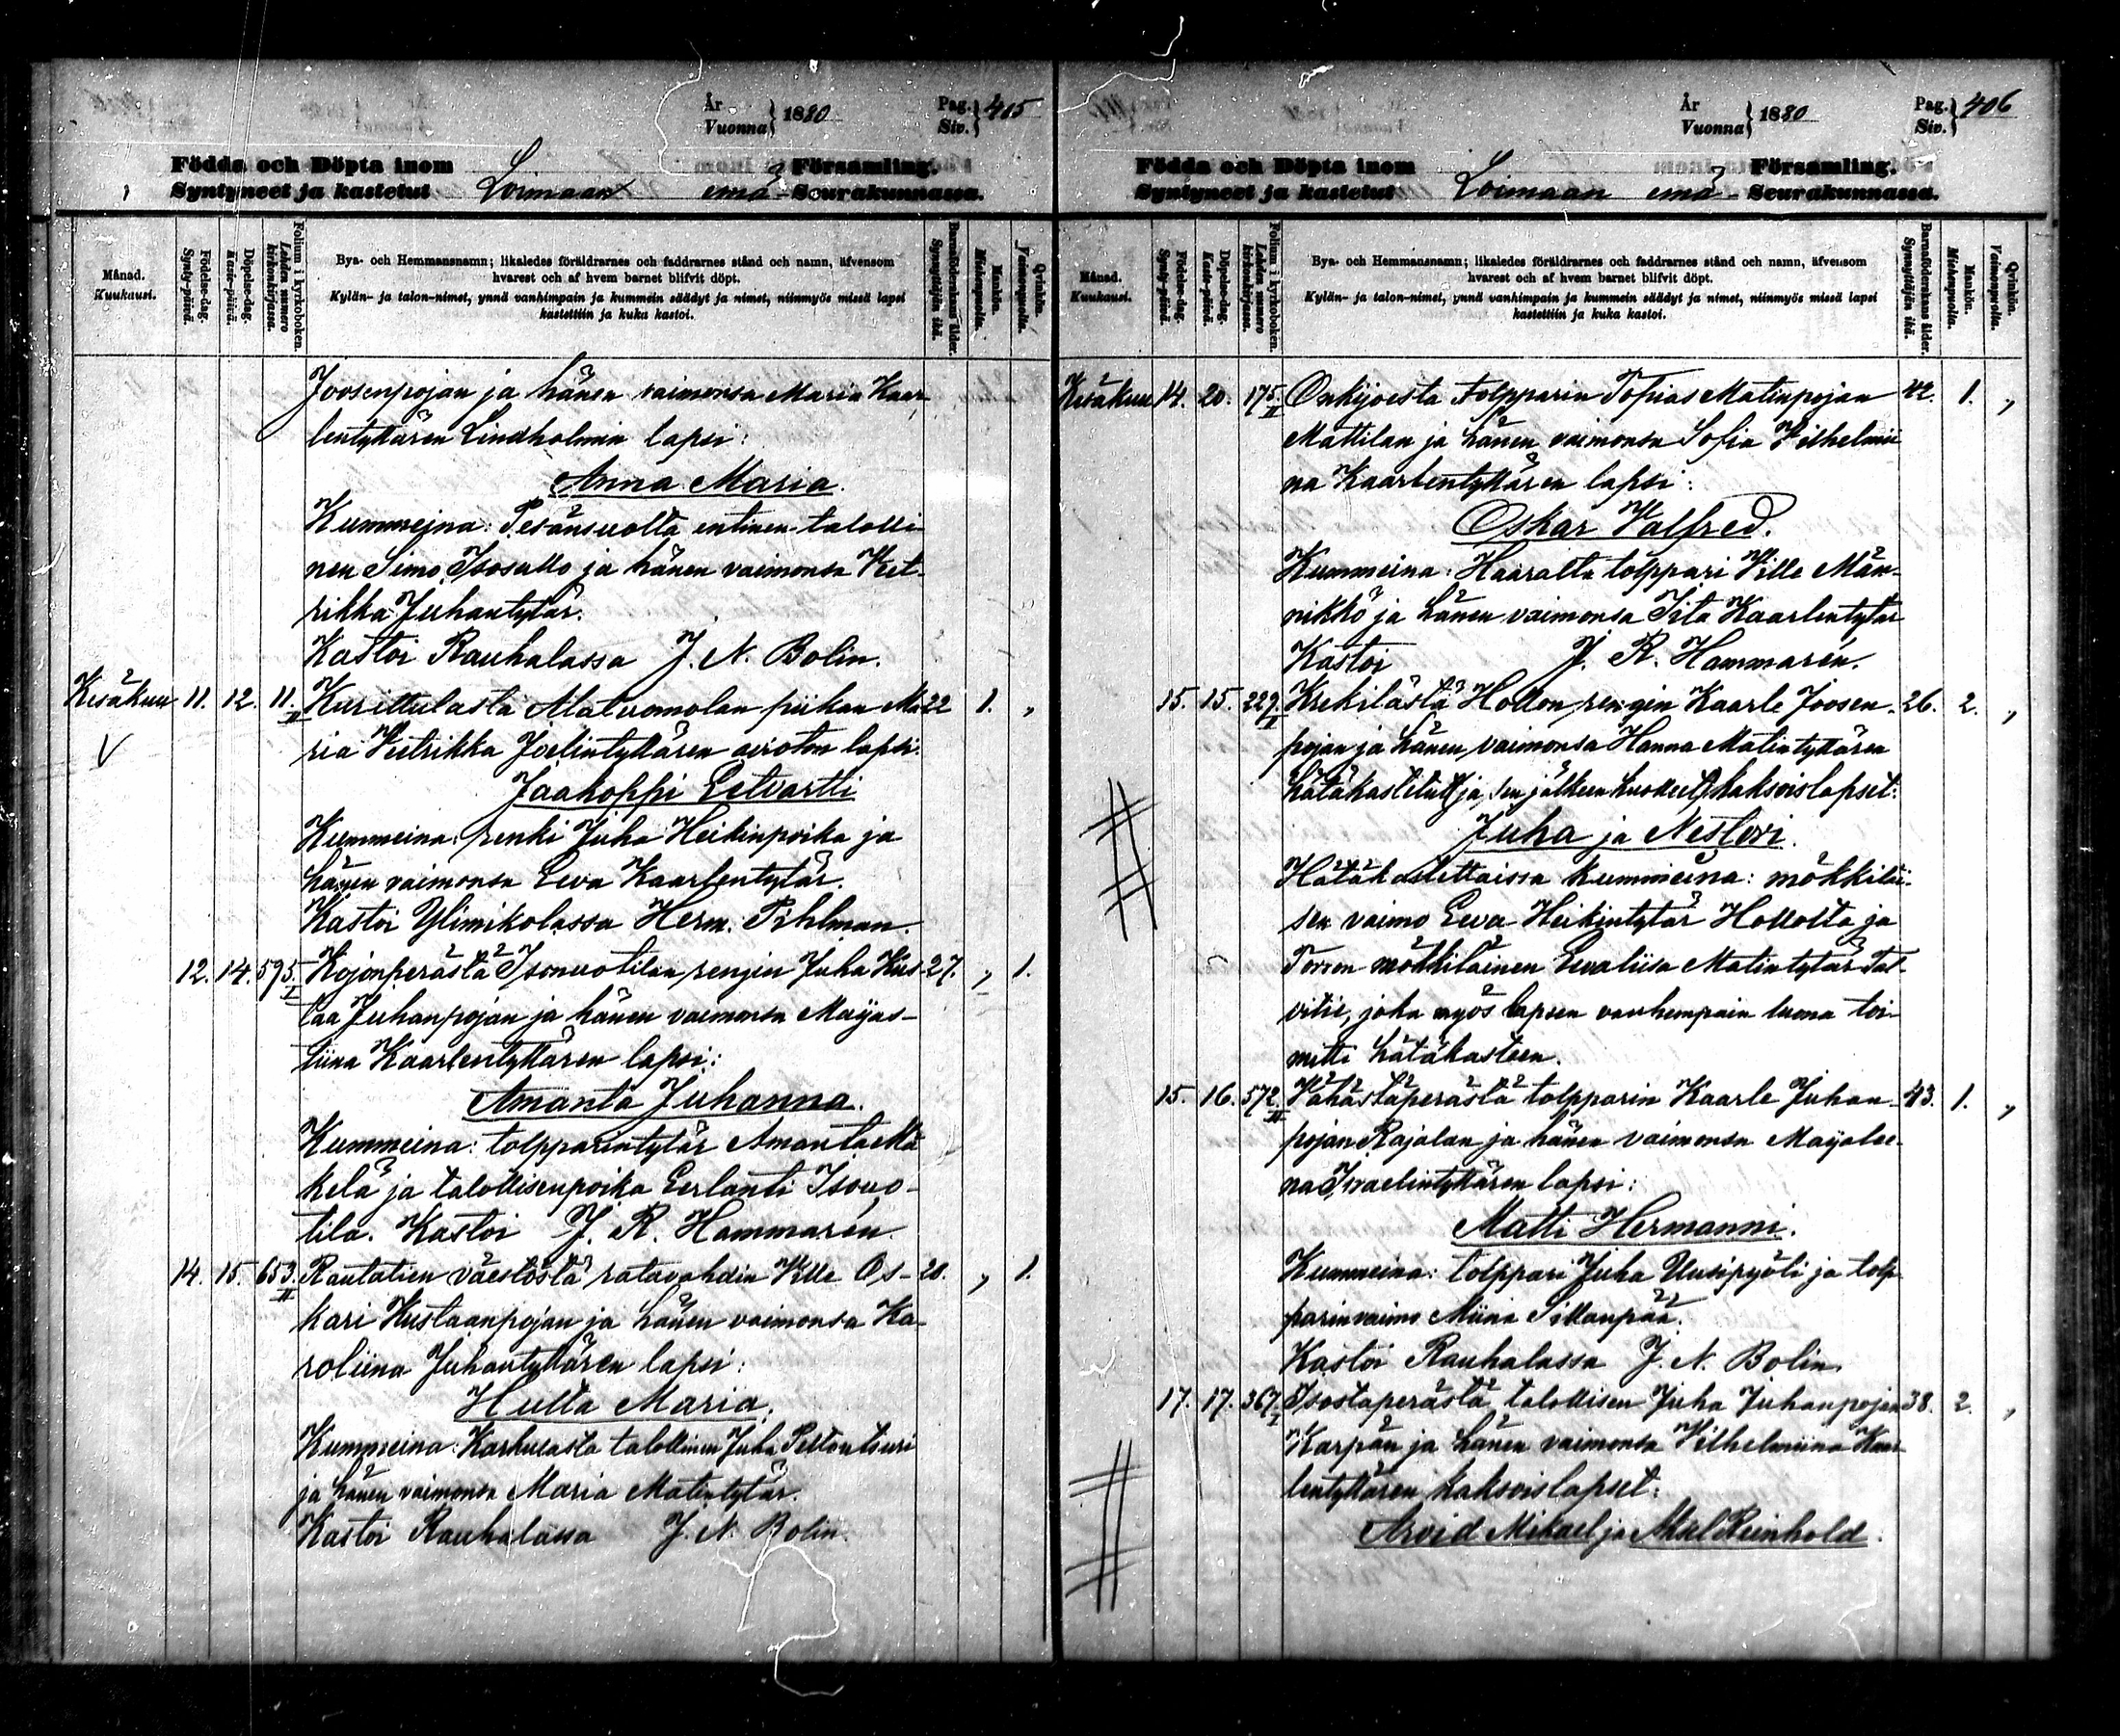 År
Vuonna } 1880
Pag.
Siv. } 405
Födda och Döpta inom Församling.
Syntyneet ja kastetut Loimaan emä- Seurakunnassa.
Månad.
Kuukausi.
Födelse-dag.
Synty-päivä.
Döpelse-dag.
Kaste-päivä.
Folium i kyrkoboken.
Lehden numero
kirkonkirjassa.
Bya- och Hemmansnamn; likaledes föräldrarnes och faddrarnes stånd och namn, äfvensom
hvarest och af hvem barnet blifvit döpt.
Kylän- ja talon-nimet, ynnä vanhimpain ja kummein säädyt ja nimet, niinmyös missä lapsi
kastettiin ja kuka kastoi.
Barnaföderskans ålder.
Synnyttäjän ikä.
Mankön.
Miehenpuolta.
Qvinkön.
Vaimonpuolta.
Joosenpojan ja hänen vaimonsa Maria Kaar
lentyttären Lindholmin lapsi:
Anna Maria.
Kummeina: Pesänsuolta entinen talolli
nen Simo Isosallo ja hänen vaimonsa Veet-
rikka Juhantytär.
Kastoi Rauhalassa J. N. Bolin.
Kesäkuu 11. 12. 11. II Kurittulasta Alatuomolan piikan Ma 22 1. "
ria Veetrikka Joelintyttären avioton lapsi.
Jaakoppi Eetvartti
Kummeina: renki Juha Heikinpoika ja
hänen vaimonsa Eeva Kaarlentytär.
Kastoi Ylimikolassa Herm. Pihlman.
12. 14. 595. I Kojonperästä Isonuotilan rengin Juha Kus- 27. " 1.
taa Juhanpojan ja hänen vaimonsa Maijas-
tiina Kaarlentyttären lapsi:
Amanta Juhanna.
Kummeina: tolpparintytär Amanta Mä
kelä ja talollisenpoika Eerlanti Isonuo-
tila. Kastoi J. R. Hammarén.
14. 15. 653. II Rautatien väestöstä ratavahdin Ville Os- 28. " 1.
kari Kustaanpojan ja hänen vaimonsa Ka-
roliina Juhantyttären lapsi:
Hulta Maria.
Kummeina: Karhulasta talollinen Juha
ja hänen vaimonsa Maria Matintytär.
Kastoi Rauhalassa J. N. Bolin.
År
Vuonna } 1880
Pag.
Siv. } 406
Födda och Döpta inom Församling.
Syntyneet ja kastetut Loimaan emä- Seurakunnassa.
Månad.
Kuukausi.
Födelse-dag.
Synty-päivä.
Döpelse-dag.
Kaste-päivä.
Folium i kyrkoboken.
Lehden numero
kirkonkirjassa.
Bya- och Hemmansnamn; likaledes föräldrarnes och faddrarnes stånd och namn, äfvensom
hvarest och af hvem barnet blifvit döpt.
Kylän- ja talon-nimet, ynnä vanhimpain ja kummein säädyt ja nimet, niinmyös missä lapsi
kastettiin ja kuka kastoi.
Barnaföderskans ålder.
Synnyttäjän ikä.
Mankön.
Miehenpuolta.
Qvinkön.
Vaimonpuolta.
Kesäkuu 14. 20. 175. II Onkijoesta tolpparin Tofias Matinpojan 42. 1. "
Mattilan ja hänen vaimonsa Sofia Vilhelmii
na Kaarlentyttären lapsi:
Oskar Valfred.
Kummeina: Haaralta tolppari Ville Män-
nikkö ja hänen vaimonsa Iita Kaarlentytär
Kastoi J. R. Hammarén.
15. 15. 229. II Krekilästä Hollon rengin Kaarle Joosen- 26. 2. "
pojan ja hänen vaimonsa Hanna Matintyttären
hätäkastetut (ja sen jälkeen kuolleet) kaksoislapset:
Juha ja Nestori.
Hätäkastettaissa kummeina: mökkiläi-
sen vaimo Eeva Heikintytär Hollolta ja
Torron mökkiläinen Eevaliisa Matintytär Tal-
vitie, joka myös lapsen vanhempain luona toi-
mitti hätäkasteen.
15. 16. 572. II Vähästäperästä tolpparin Kaarle Juhan- 43. 1. "
pojan Rajalan ja hänen vaimonsa Maijalee-
na Israelintyttären lapsi:
Matti Hermanni.
Kummeina: tolppari Juha Uusipyöli ja tolp
parinvaimo Miina Sillanpää.
Kastoi Rauhalassa J. N. Bolin.
17. 17. 367. I Isostaperästä talollisen Juha Juhanpojan 38. 2. "
Karpän ja hänen vaimonsa Vilhelmiina Kaar
lentyttären kaksoislapset:
Arvid Mikael ja Akul Reinhold.